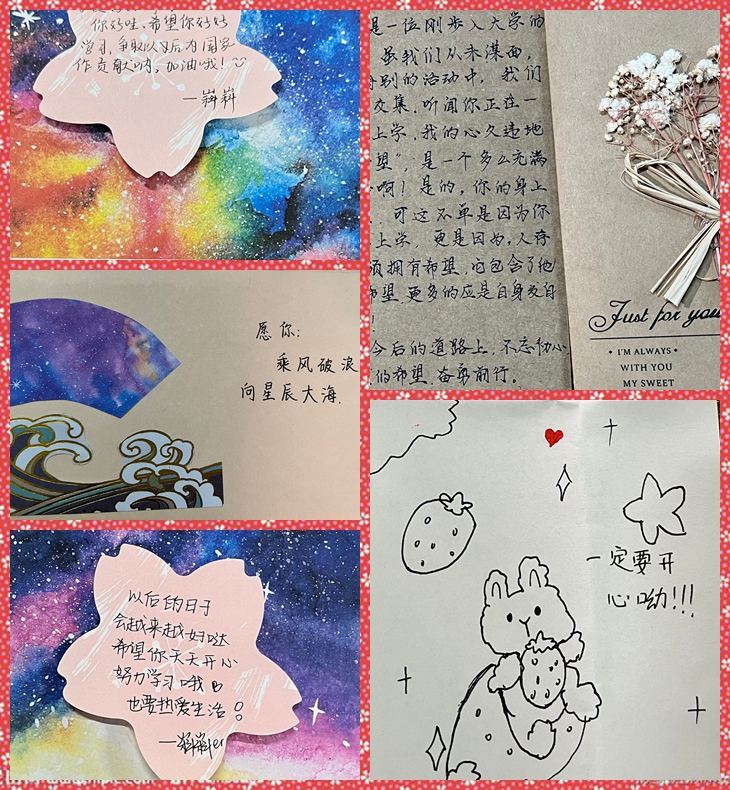 你好哇,希望你好好
学习,争取以后为国家
作贡献呐,加油哦!
是一位刚步入大学的
虽我们从未谋面,
别的活动中,我们
交集.听闻你正在一
上学,我的心久违地
望”,是一个多么充满
啊!是的,你的身上
可这不单是因为你
上学,更是因为,人存
须拥有希望.它包含了他
希望.更多的应是自身发自
今后的道路上,不忘初心
的希望.奋勇前行。
Just for you
• I'M ALWAYS •
WITH YOU
MY SWEET
愿你:
乘风破浪
向星辰大海.
一定要开
心呦!!!
以后的日子
会越来越好哒
希望你天天开心
努力学习哦
也要热爱生活!